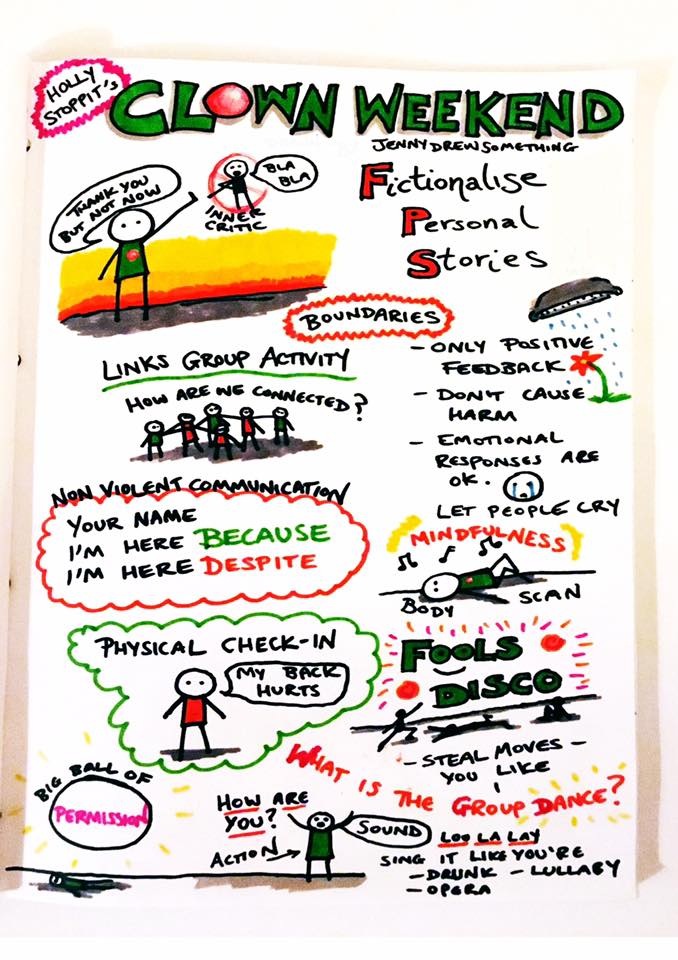 HOLLY
STOPPIT's
CLOWN WEEKEND
JENNYDREWSOMETHING
THANK YOU
BUT NOT NOW
BLA
BLA
INNER
CRITIC
Fictionalise
Personal
Stories
BOUNDARIES
- ONLY POSITIVE
FEEDBACK
- DON'T CAUSE
HARM
- EMOTIONAL
RESPONSES ARE
OK.
LET PEOPLE CRY
LINKS GROUP ACTIVITY
HOW ARE WE CONNECTED?
NON VIOLENT COMMUNICATION
YOUR NAME
I'M HERE BECAUSE
I'M HERE DESPITE
MINDFULNESS
BODY SCAN
PHYSICAL CHECK-IN
MY BACK
HURTS
FOOLS
DISCO
- STEAL MOVES -
YOU LIKE
WHAT IS THE GROUP DANCE?
BIG BALL OF
PERMISSION
HOW ARE
YOU?
ACTION →
SOUND
LOO LA LAY
SING IT LIKE YOU'RE
- DRUNK - LULLABY
- OPERA